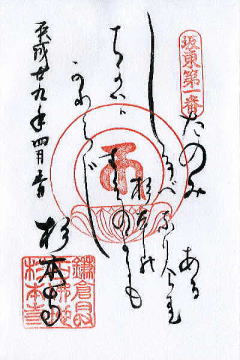 坂東第一番
たのみある
しるべなりけり
杉本の
ちかひは
かはらじ
平成廿九年四月吉
杉本寺
杉本寺